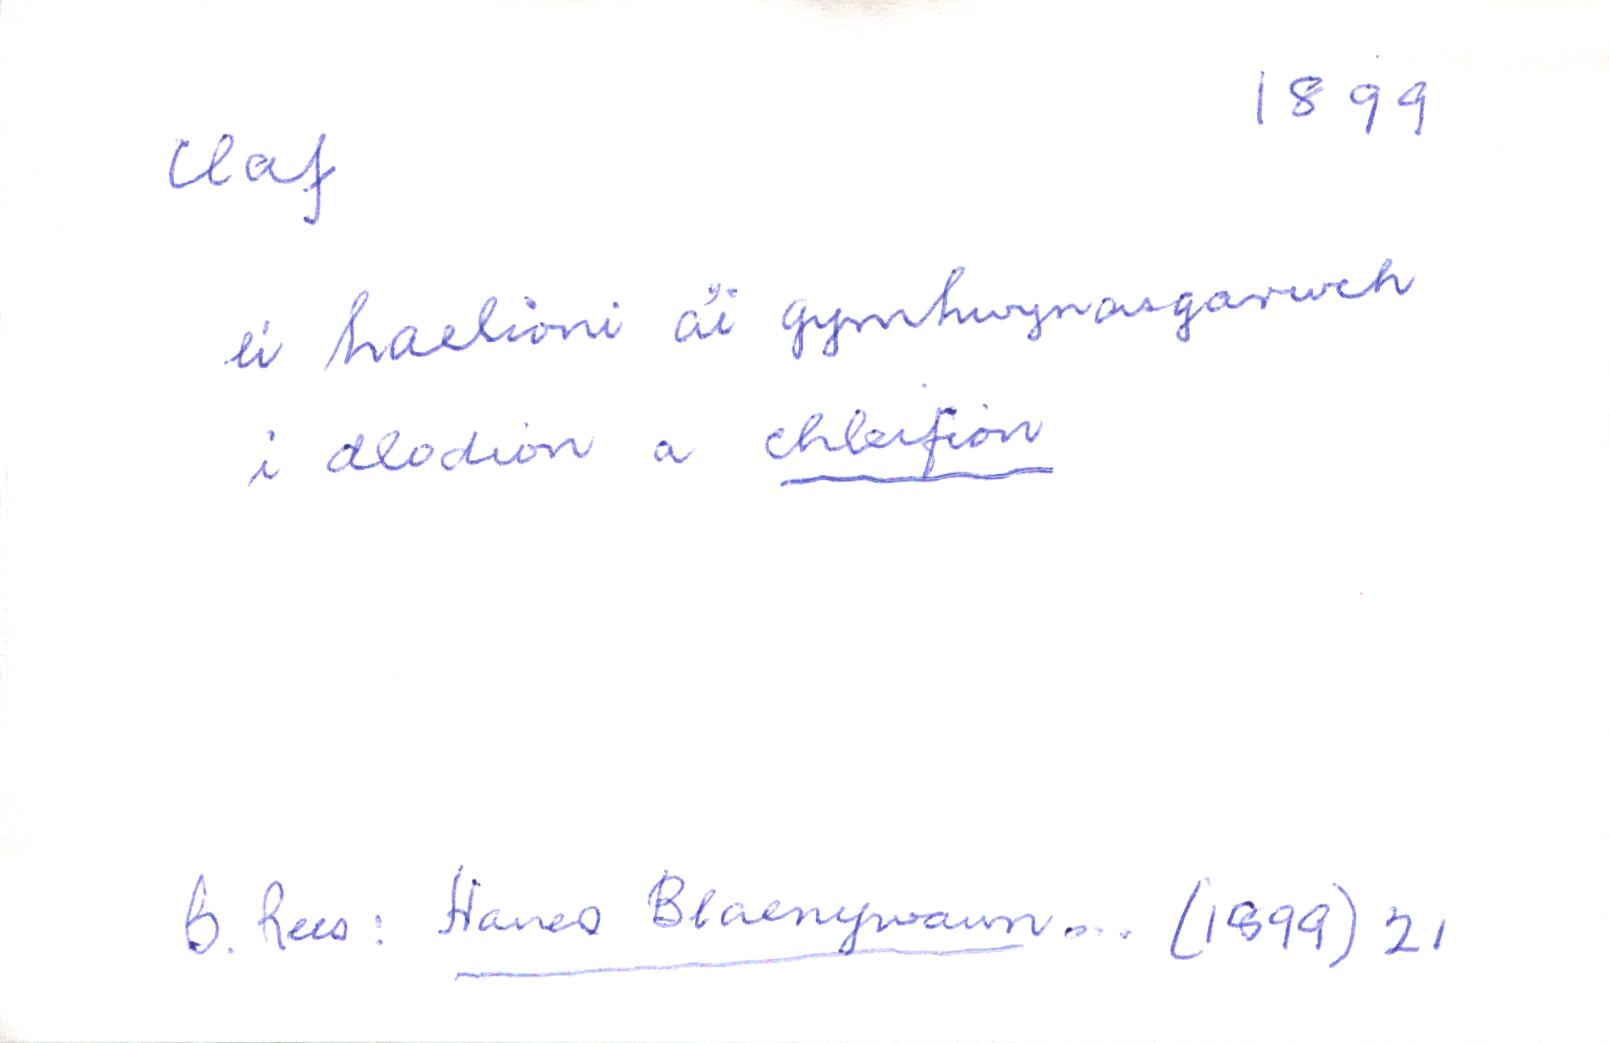 1899
claf
ei haelioni a'i gymhwynasgarwch
i dlodion a chleifion
B. Rees: Hanes Blaenywaun... (1899) 21